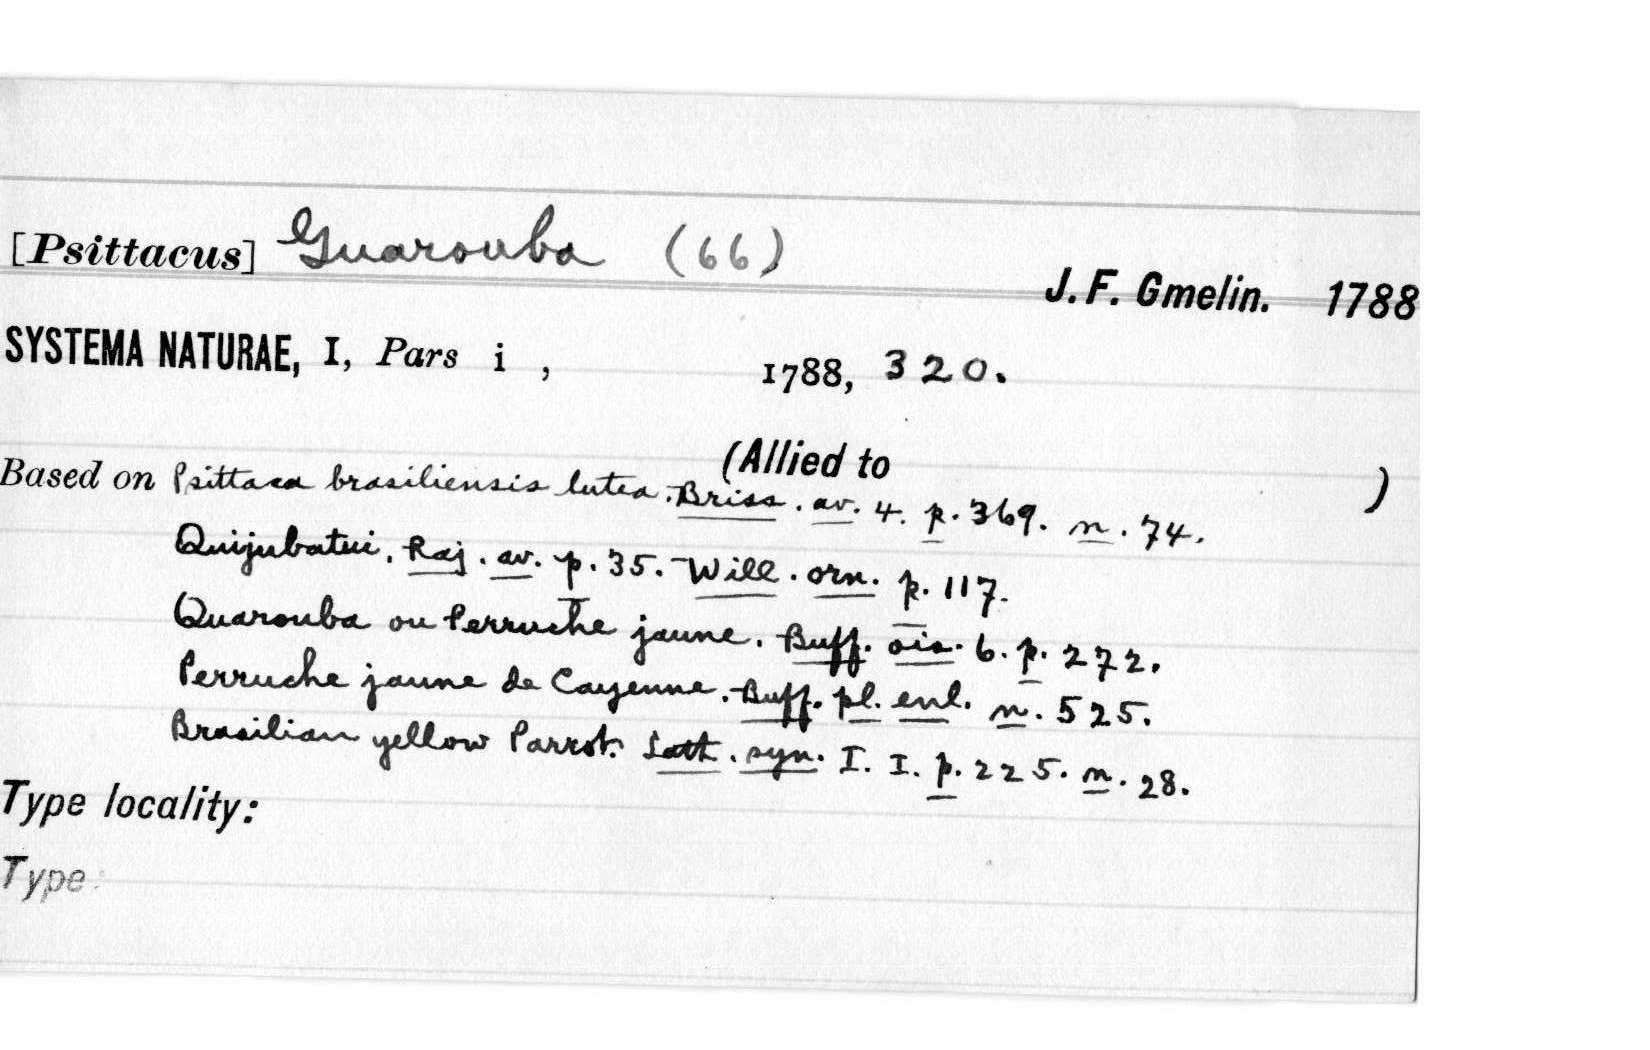 [Psittacus] Guarouba (66)
J. F. Gmelin. 1788
SYSTEMA NATURAE, I, Pars i , 1788, 320.
(Allied to )
Based on Psittaca brasiliensis lutea. Briss. av. 4. p. 369. n. 74.
Quijubatui. Raj. av. p. 35. Will. orn. p. 117.
Quarouba ou Perruche jaune. Buff. ois. 6. p. 272.
Perruche jaune de Cayenne. Buff. pl. enl. n. 525.
Brasilian yellow Parrot. Lath. syn. I. I. p. 225. n. 28.
Type locality:
Type: